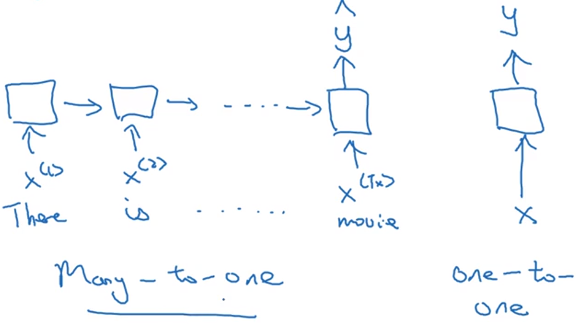 ŷ y
x<1> x<2> x<Tx> x
There is ...... movie
Many-to-one one-to-
one